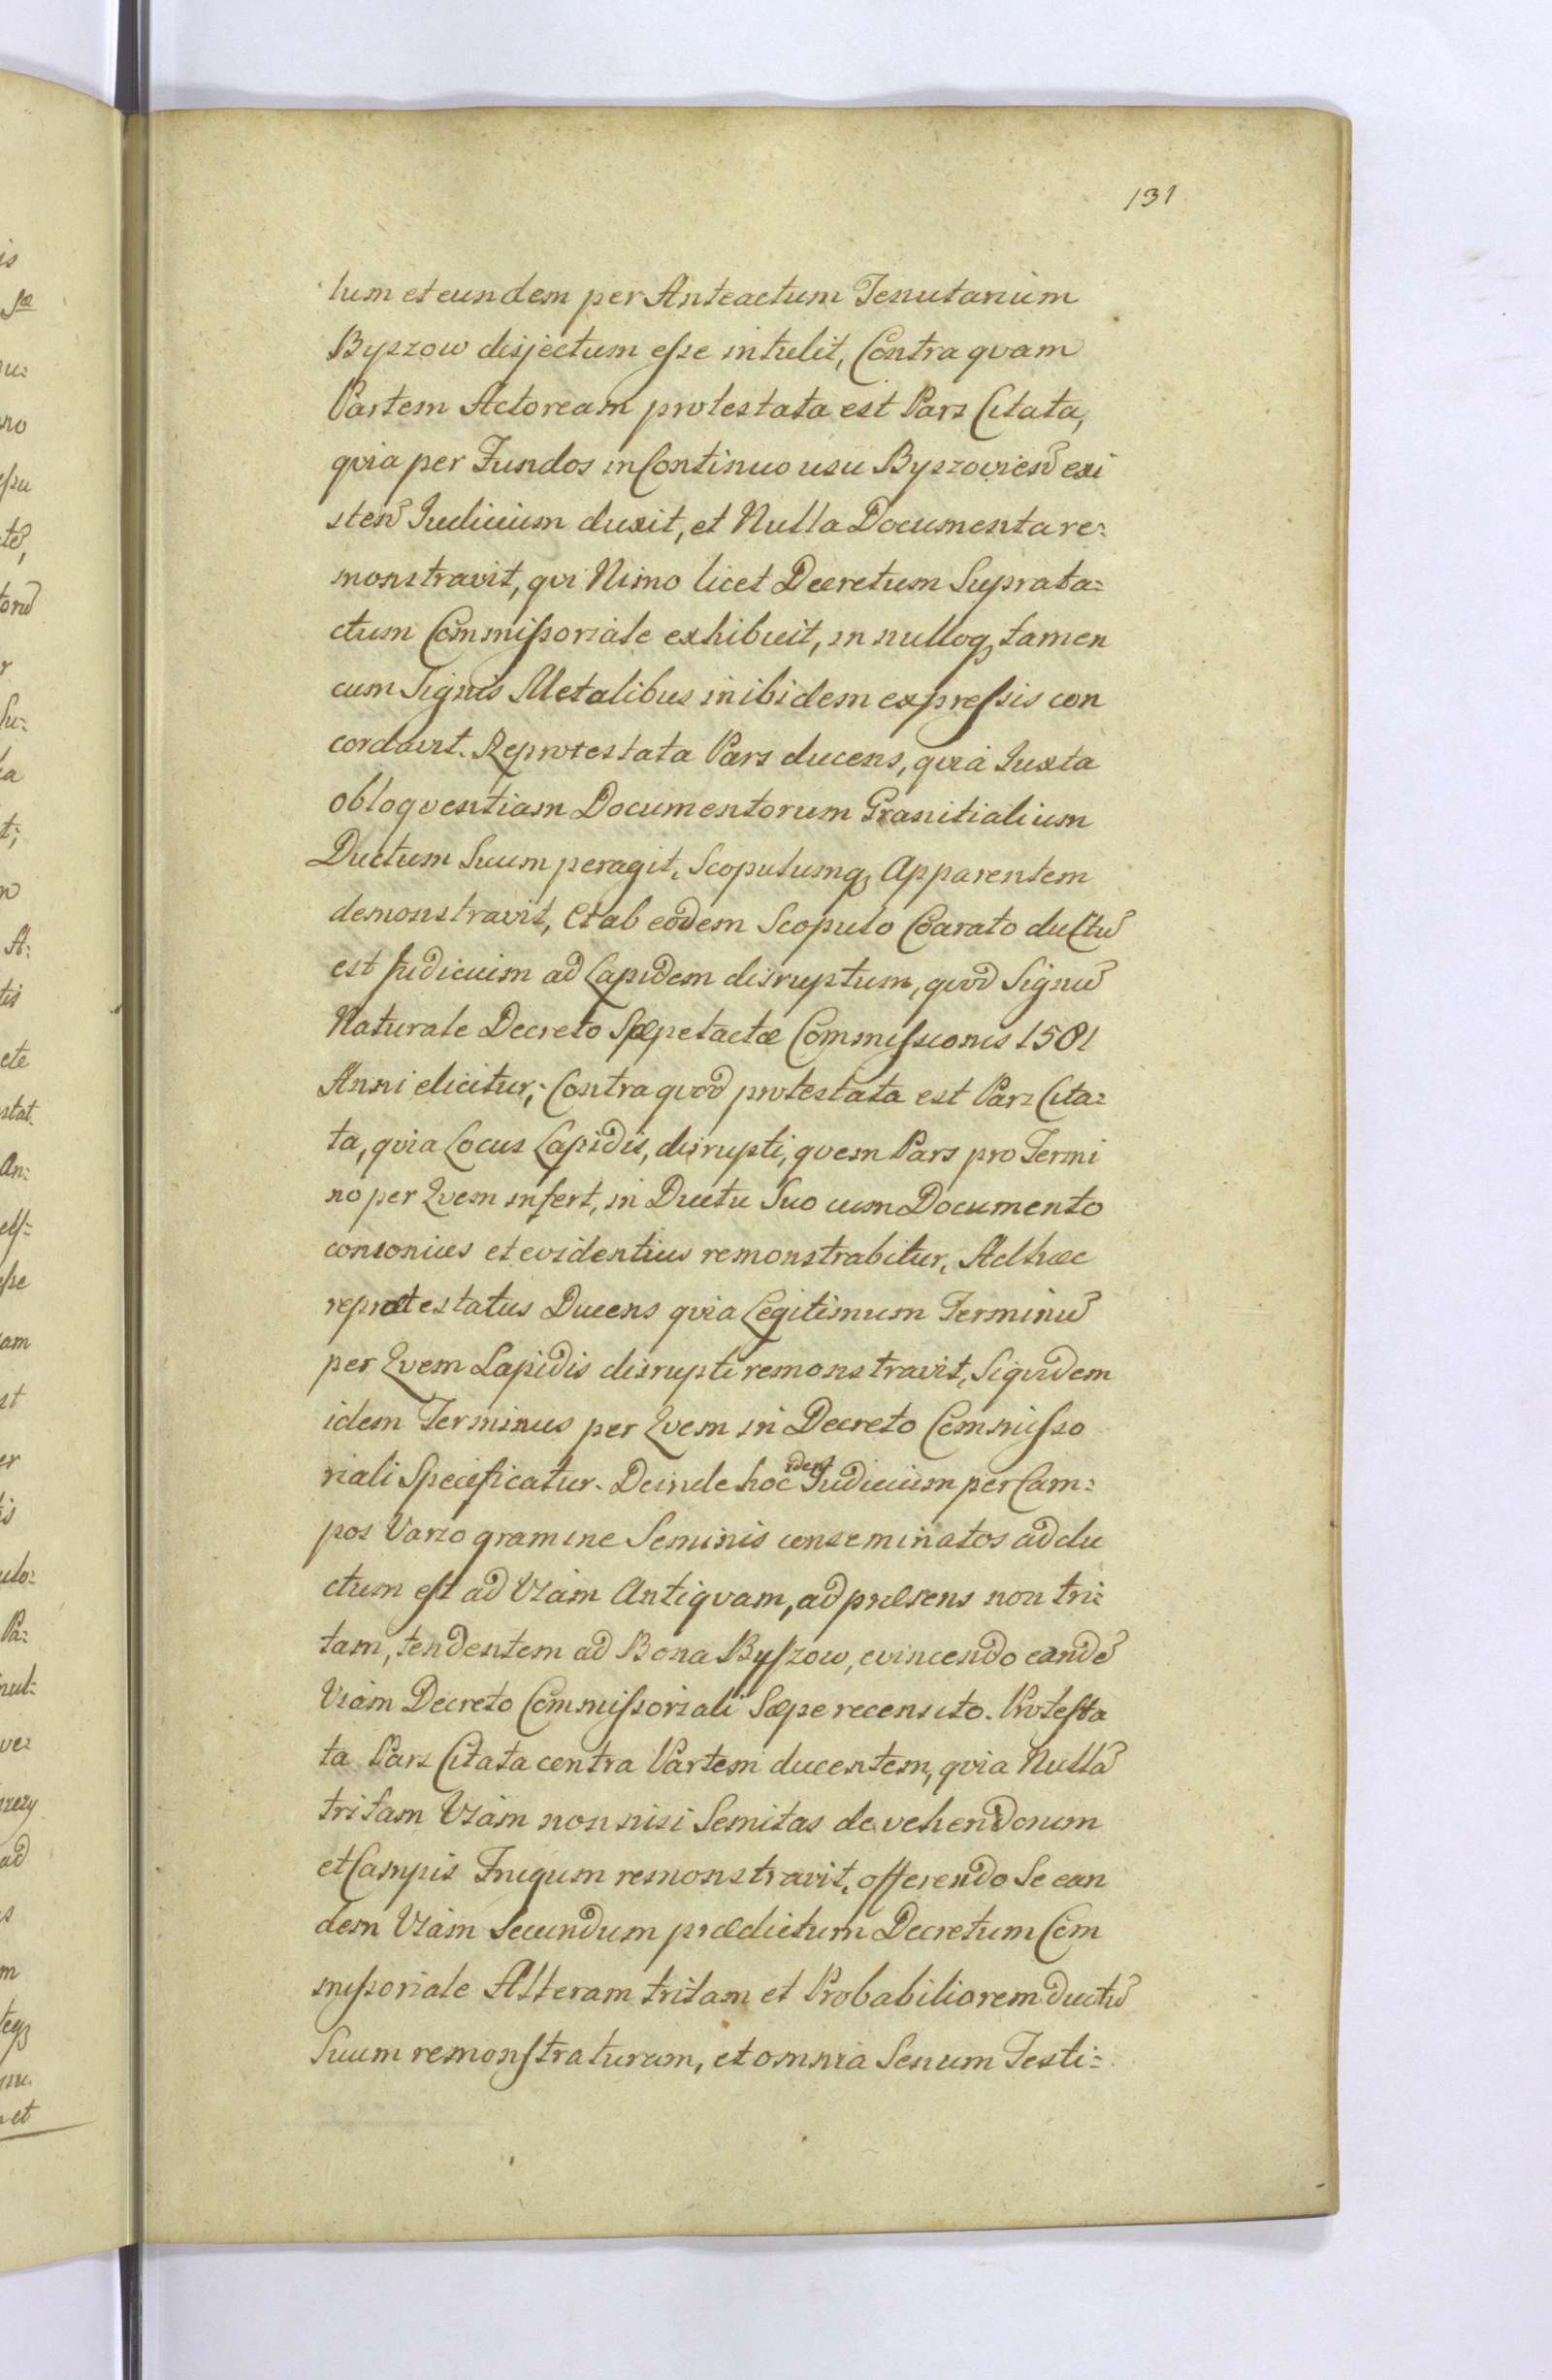 131
lum et eundem per Anteactum Tenutarium
Byszow disjectum eſse intulit, Contra qvam
Partem Actoream protestata est Pars Citata,
qvia per Fundos in Continuo usu Byszovien̄ exi
sten̄ Judicium duxit, et Nulla Documenta re:
monstravit, qvi Nimo licet Decretum Suprata=
ctum Commiſsoriale exhibuit, in nulloq₃ tamen
cum Signis Metalibus inibidem expreſsis con
cordavit. Reprotestata Pars ducens, qvia Juxta
obloqventiam Documentorum Granitialium
Ductum Suum peragit, Scopulumq₃ Apparentem
demonstravit, Et ab eodem Scopulo Coarato ductū
est Judicium ad Lapidem disruptum, qvod Signū
Naturale Decreto Sæpetactæ Commiſsionis 1581
Anni elicitur; Contra qvod protestata est Pars Cita=
ta, qvia Locus Lapidis, disrupti, qvem Pars pro Termi
no per Qvem infert, in Ductu Suo cum Documento
consonius et evidentius remonstrabitur, Ad hæc
reprotestatus Ducens qvia Legitimum Terminū
per Qvem Lapidis disrupti remonstravit, Siqvidem
idem Terminus per Qvem in Decreto Commiſso
riali Specificatur. Deinde hoc idem Judicium per Cam=
pos Vario gramine Seminis conseminatos addu
ctum eſt ad Viam Antiqvam, ad præsens non tri=
tam, tendentem ad Bona Byſzow, evincendo eandē
Viam Decreto Commiſsoriali Sæpe recensito. Proteſta
ta Pars Citata contra Partem ducentem, qvia Nullā
tritam Viam non nisi Semitas de vehendorum
et Campis Frugum remonstravit, offerendo Se ean
dem Viam Secundum prædictum Decretum Com
miſsoriale Alteram tritam et Probabiliorem ductū
Suum remonſtraturam, et omnia Senum Testi=